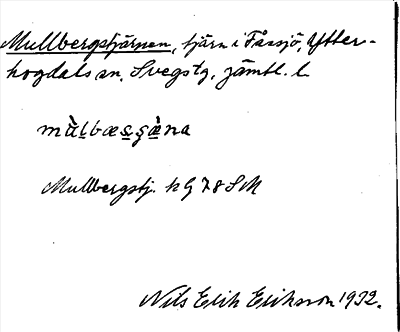 Mullbergstjärnen, tjärn i Fåssjö, Ytter-
hogdals sn. Svegs tg, Jämtl. l.
mùlbæsɡæ̀na
Mullbergstj. k G 78 SM
Nils Erik Eriksson 1932.